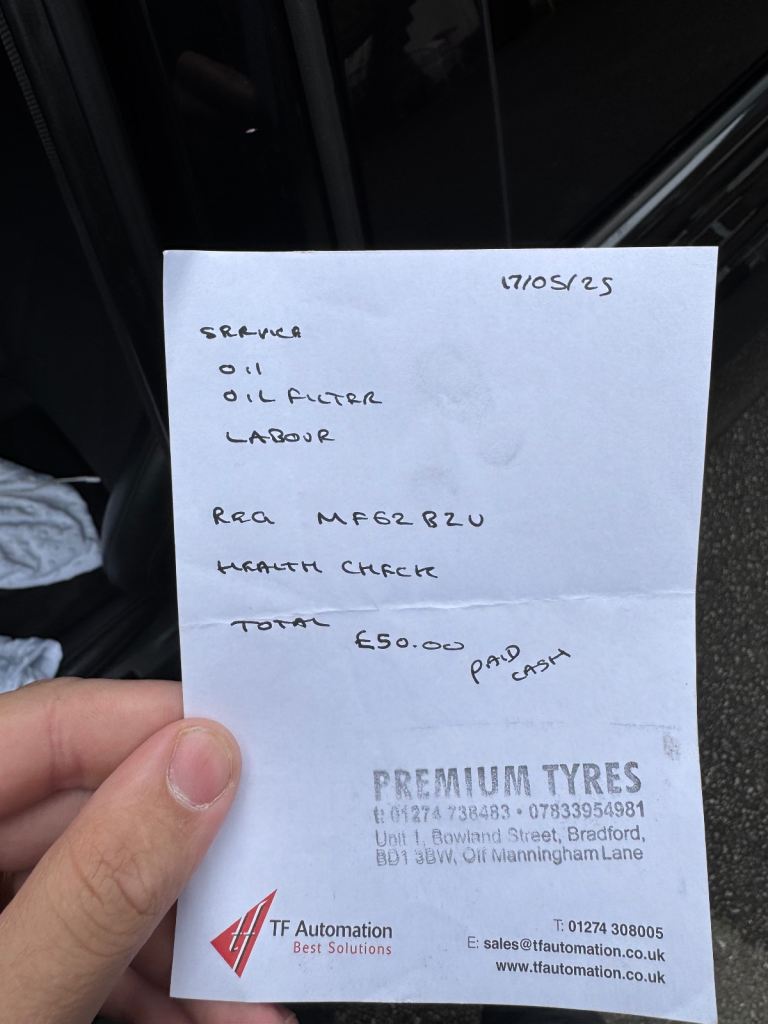 17/05/25
SERVICE
OIL
OIL FILTER
LABOUR
REG MF62 BZU
HEALTH CHECK
TOTAL £50.00 PAID CASH
PREMIUM TYRES
t: 01274 738483 • 07833954981
Unit 1, Bowland Street, Bradford,
BD1 3BW, Off Manningham Lane
TF Automation
Best Solutions
T: 01274 308005
E: sales@tfautomation.co.uk
www.tfautomation.co.uk